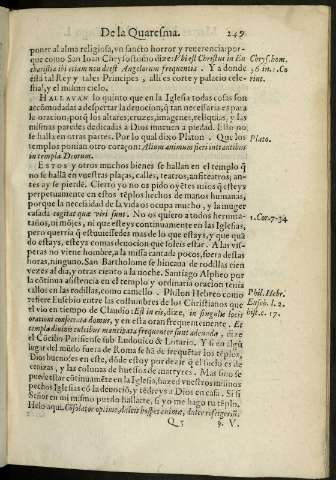 De la Quaresma. 249
poner al alma religiosa, un sancto horror y reuerencia: por-
que como San Ioan Chrysostomo dize: Vbi est Christus in Eu Chrys. hom.
charistia ibi etiam non deest Angelorum frequentia. Y a donde 36 in 1. Co
està tal Rey y tales Principes, alli es corte y palacio cele- rint.
stial, y el mismo cielo.
HALLAVAN lo quinto que en la Iglesia todas cosas son
accõmodadas a despertar la deuociõ, q̃ tan necessaria es para
la oracion, porq̃ los altares, cruzes, imagenes, reliquias, y las
mismas paredes dedicadas a Dios mueuen a piedad. Esto no
se halla en otras partes. Por lo qual dixo Platon. Que los Plato.
templos ponian otro coraçon: Alium animum fieri intrantibus
in templa Deorum.
ESTOS y otros muchos bienes se hallan en el templo q̃
no se hallã en vuestras plaças, calles, teatros, anfiteatros; an-
tes ay se pierde. Cierto yo no os pido oyẽtes mios q̃ esteys
perpetuamente en estos tẽplos hechos de manos humanas,
porque la necessidad de la vida os ocupa mucho, y la muger
casada cogitat quæ viri sunt. No os quiero a todos hermi- 1. Cor. 7. 34
taños, ni mõjes, ni que esteys continuamente en las Iglesias,
pero querria q̃ estuuiessedes mas de lo que estays, y que quã
do estays, esteys comas deuocion que soleis estar. A las vis-
peras no viene hombre, a la missa cantada pocos, fuera destas
horas, ninguno. San Bartholome se hincaua de rodillas cien
vezes al dia, y otras ciento a la noche. Santiago Alpheo por
la cõtinua assistencia en el templo y ordinaria oracion tenia
callos en las rodillas, como camello. Philon Hebreo como Phil. Hebr.
refiere Eusebio entre las costumbres de los Christianos que Euseb. l. 2.
el vio en tiempo de Claudio: Est in eis, dize, in singulis locis hist. c. 17.
orationi consecrata domus, y en esta eran frequentemente. Et
templa diuinis cultibus mancipata frequenter sunt adeunda, dize
el Cõcilio Parisiense sub Ludouico & Lotario. Y si en algũ
lugar del mũdo fuera de Roma se ha de frequẽtar los tẽplos,
Dios bueno es en este, dõde estoy por dezir q̃ el suelo es de
cenizas, y las colunas de huessos de martyres. Mas si no se
puede estar cõtinuamẽte en la Iglesia, hazed vuestros mismos
pechos Iglesias cõ la deuociõ, y tẽdreys a Dios en casa. Si si
Señor en mi mismo puedo hallarte, si yo me hago tu tẽplo.
Helo aqui. Consolator optime, dulcis hospes animæ, dulce refrigeriũ.
Q 5 9. V.